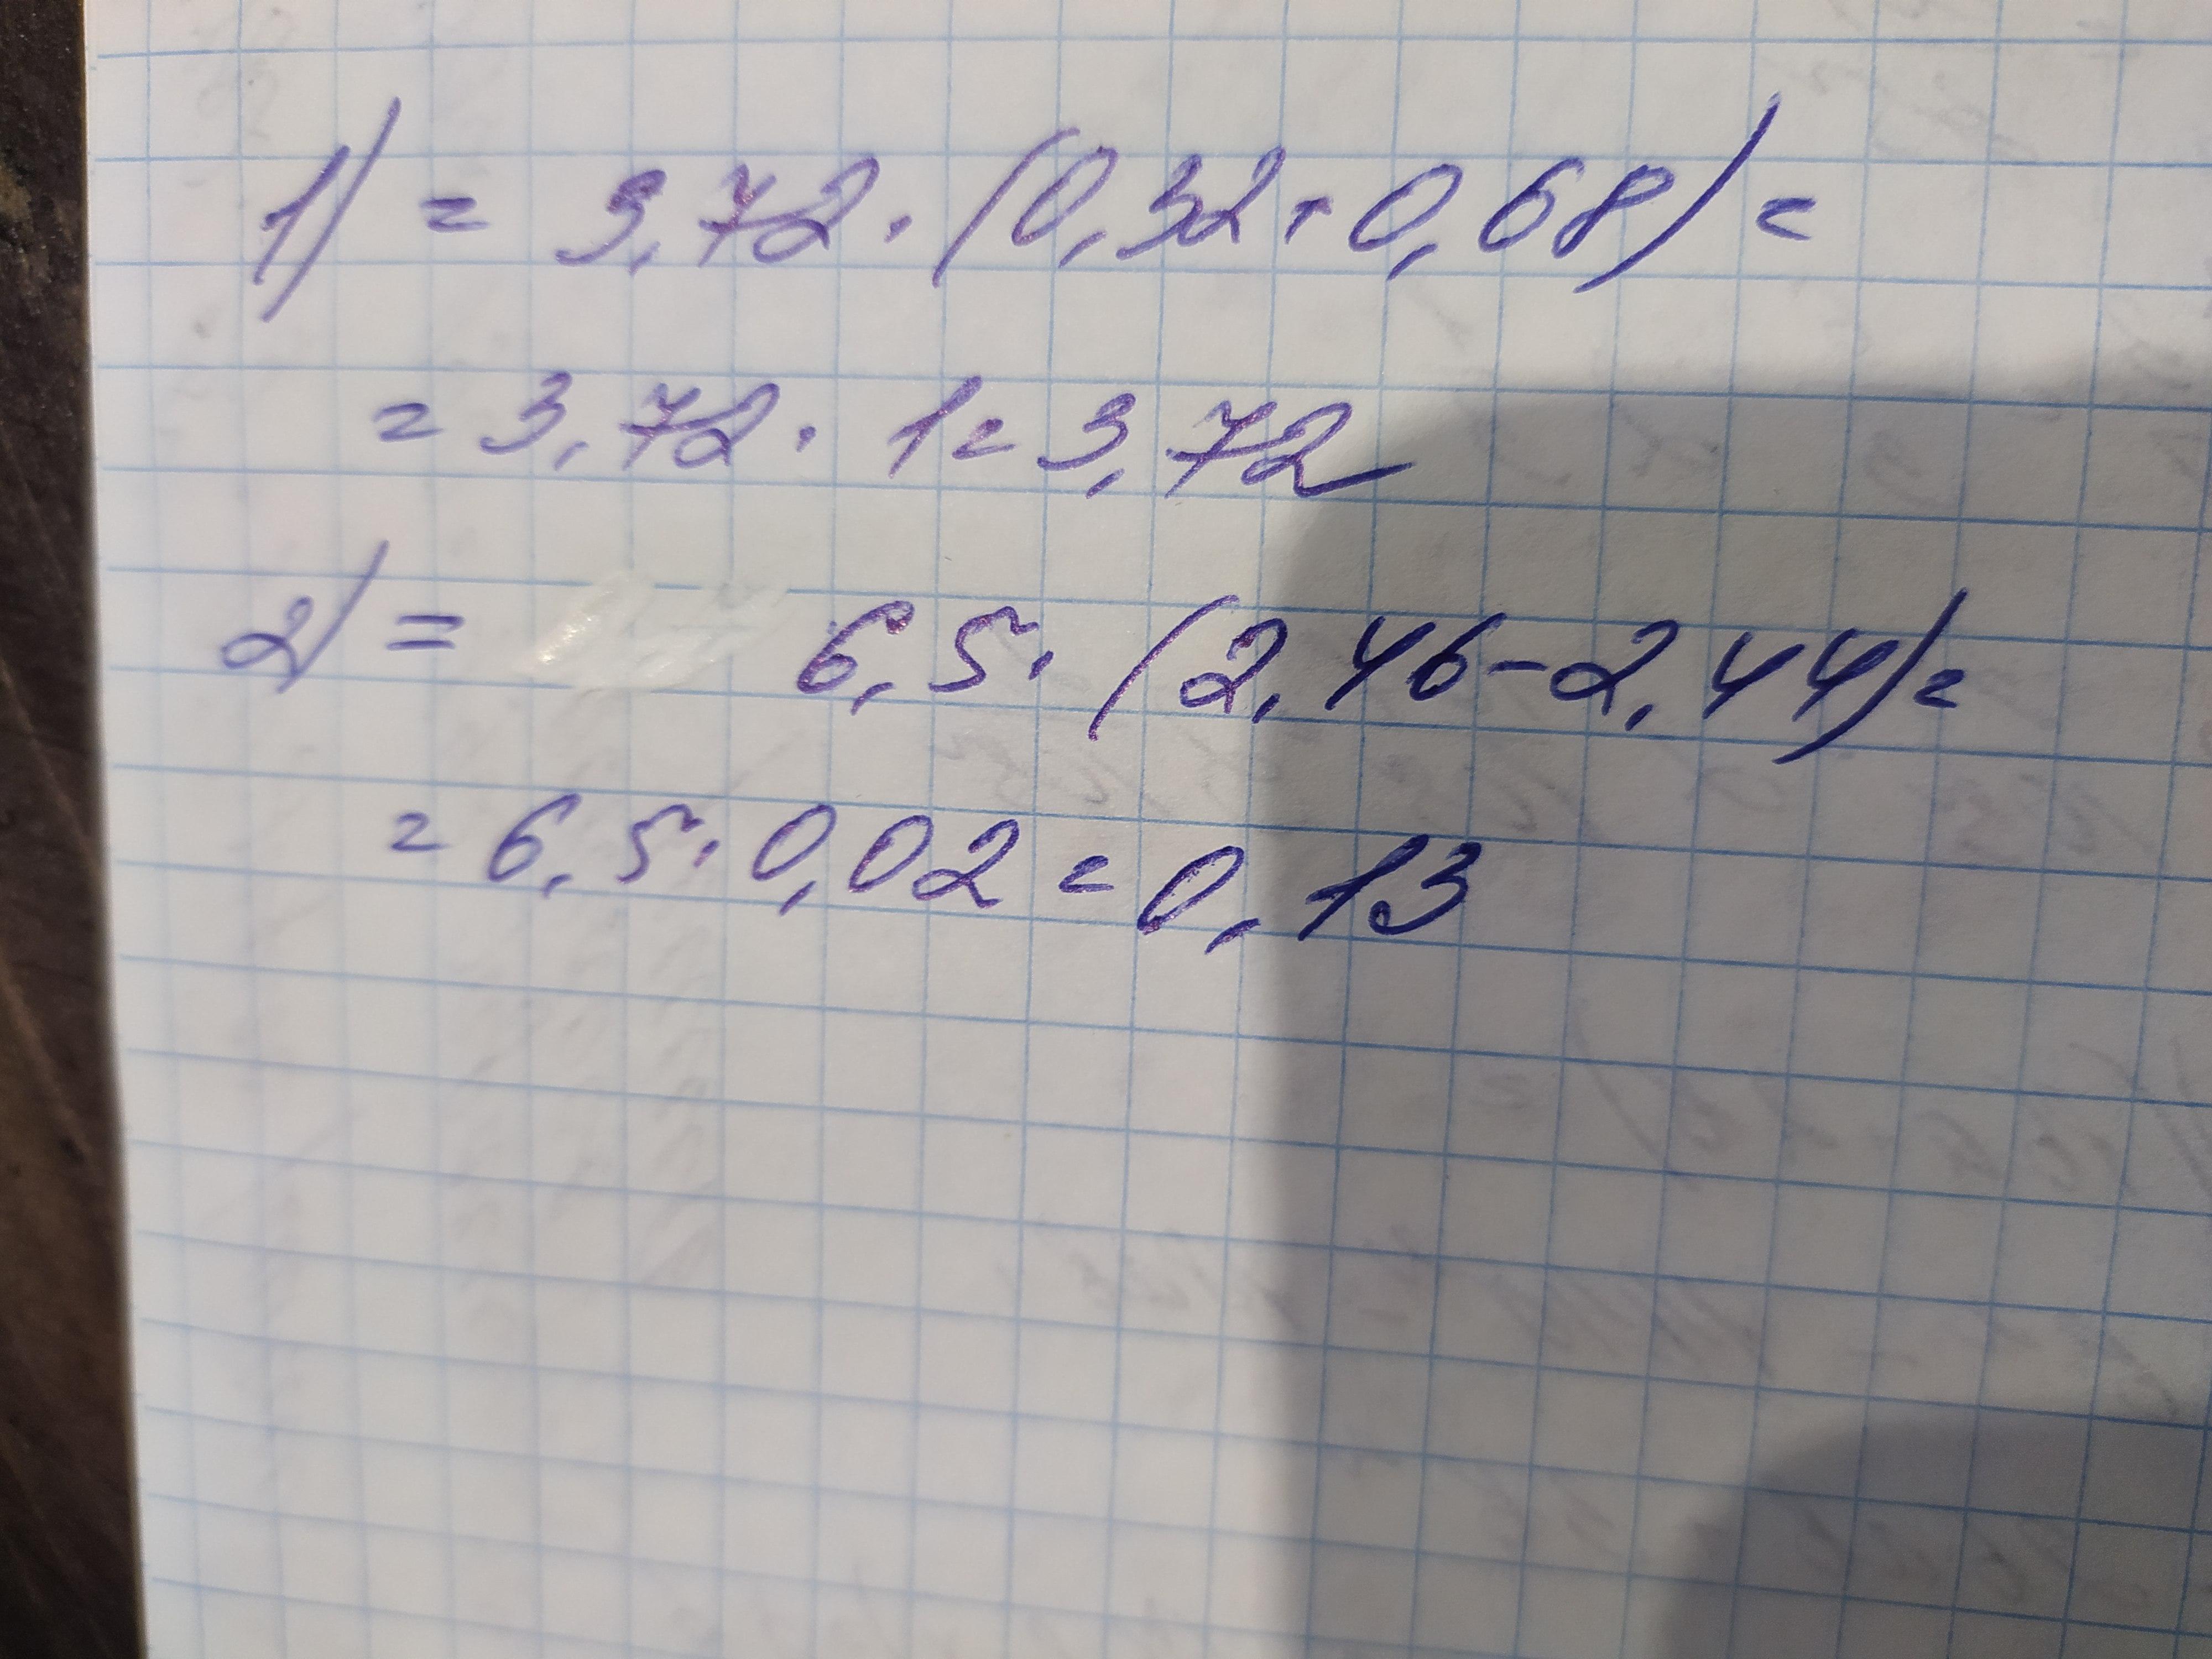 1) = 3,72 · (0,32+0,68) =
= 3,72 · 1 = 3,72
2) = 6,5 · (2,46-2,44) =
= 6,5 · 0,02 = 0,13